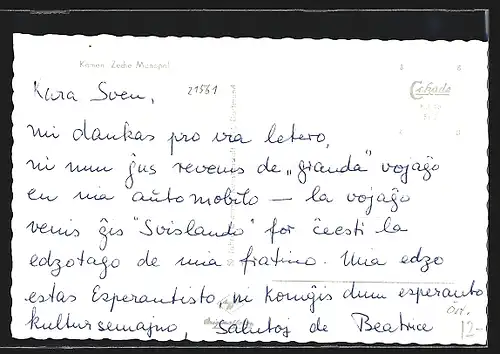 Kamen Zeche Monopol
Kara Sven, 21561
mi dankas pro via letero,
ni nun ĝus revenis de „granda" vojaĝo
en nia aŭtomobilo — la vojaĝo
venis ĝis "Svislando" for ĉeesti la
edzotago de mia fratino. Mia edzo
estas Esperantisto, ni konuĝis dum esperanto
kultursemajno, Salutoj de Beatrice
Öst.
12-